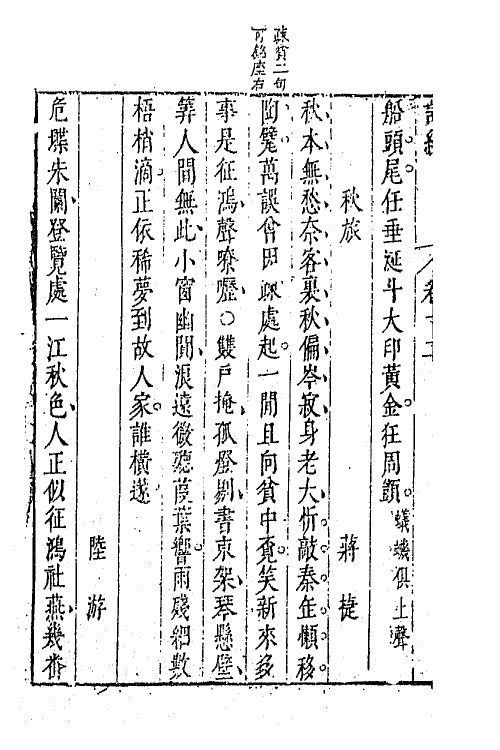 疎貧二句
可銘座右
船頭尾任垂涎斗大印黃金狂周顗 蟻蟻俱上聲
秋旅 蔣捷
秋本無愁奈客裏秋偏岑寂身老大忺敲秦缶懶移
陶甓萬誤曾因疎處起一閒且向貧中覓笑新來多
事是征鴻聲嘹嚦○雙戶掩孤燈剔書束架琴懸壁
筭人間無此小窗幽闃浪遠微聽葭葉響雨殘細數
梧梢滴正依稀夢到故人家誰橫篴
陸游
危堞朱闌登覽處一江秋色人正似征鴻社燕幾番